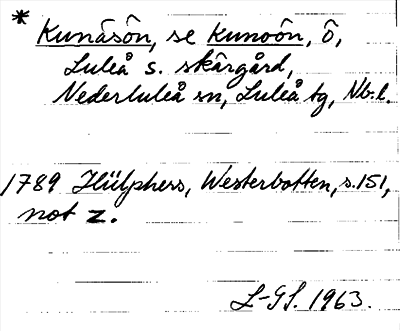 * Kunåsön, se Kunoön, ö,
Luleå s. skärgård,
Nederluleå sn, Luleå tg, Nb. l.
1789 Hülphers, Westerbotten, s. 151,
not z.
L-GL. 1963.